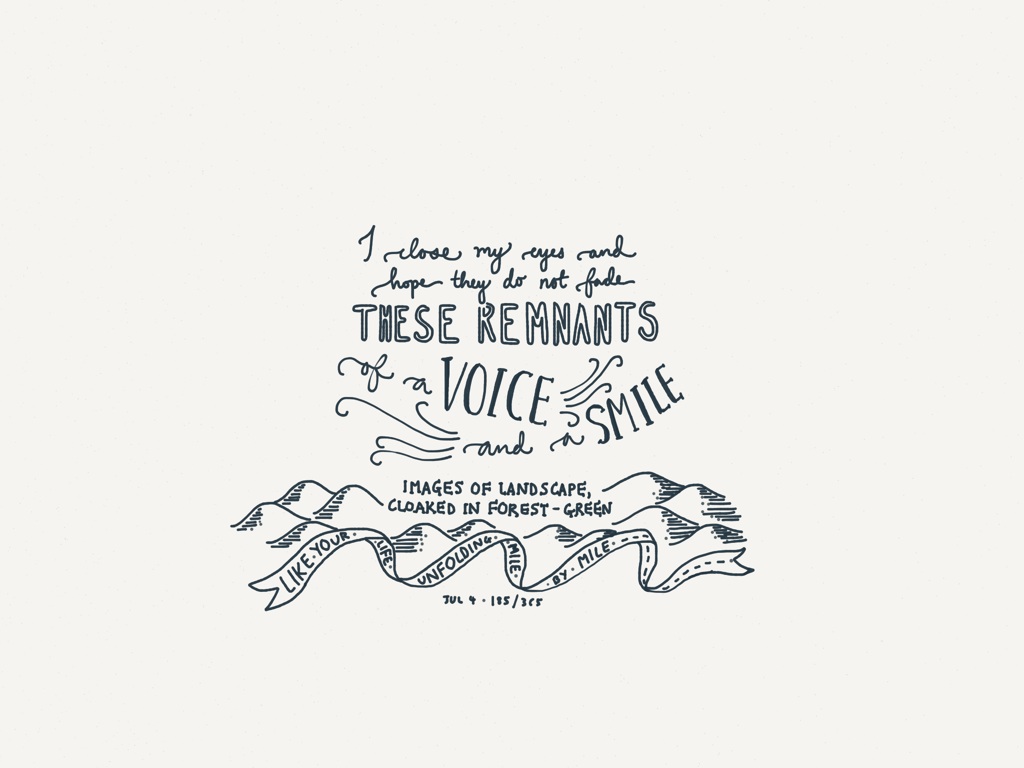 I close my eyes and
hope they do not fade
THESE REMNANTS
of a VOICE
and a SMILE
IMAGES OF LANDSCAPE,
CLOAKED IN FOREST-GREEN
LIKE·YOUR·LIFE·UNFOLDING·MILE·BY·MILE·
JUL 4 · 185/365